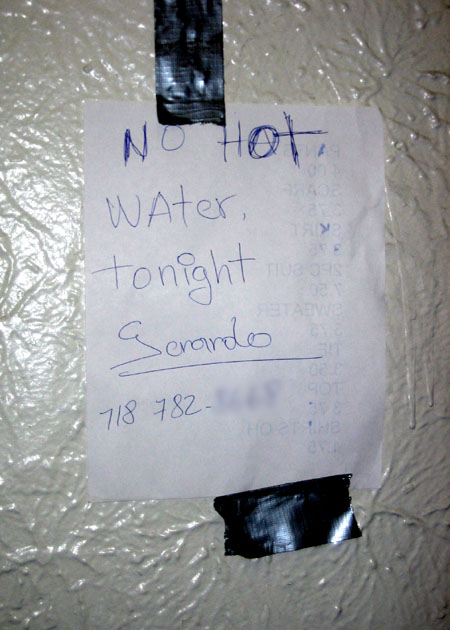 NO HOT
WAter,
tonight
Gerardo
718 782-